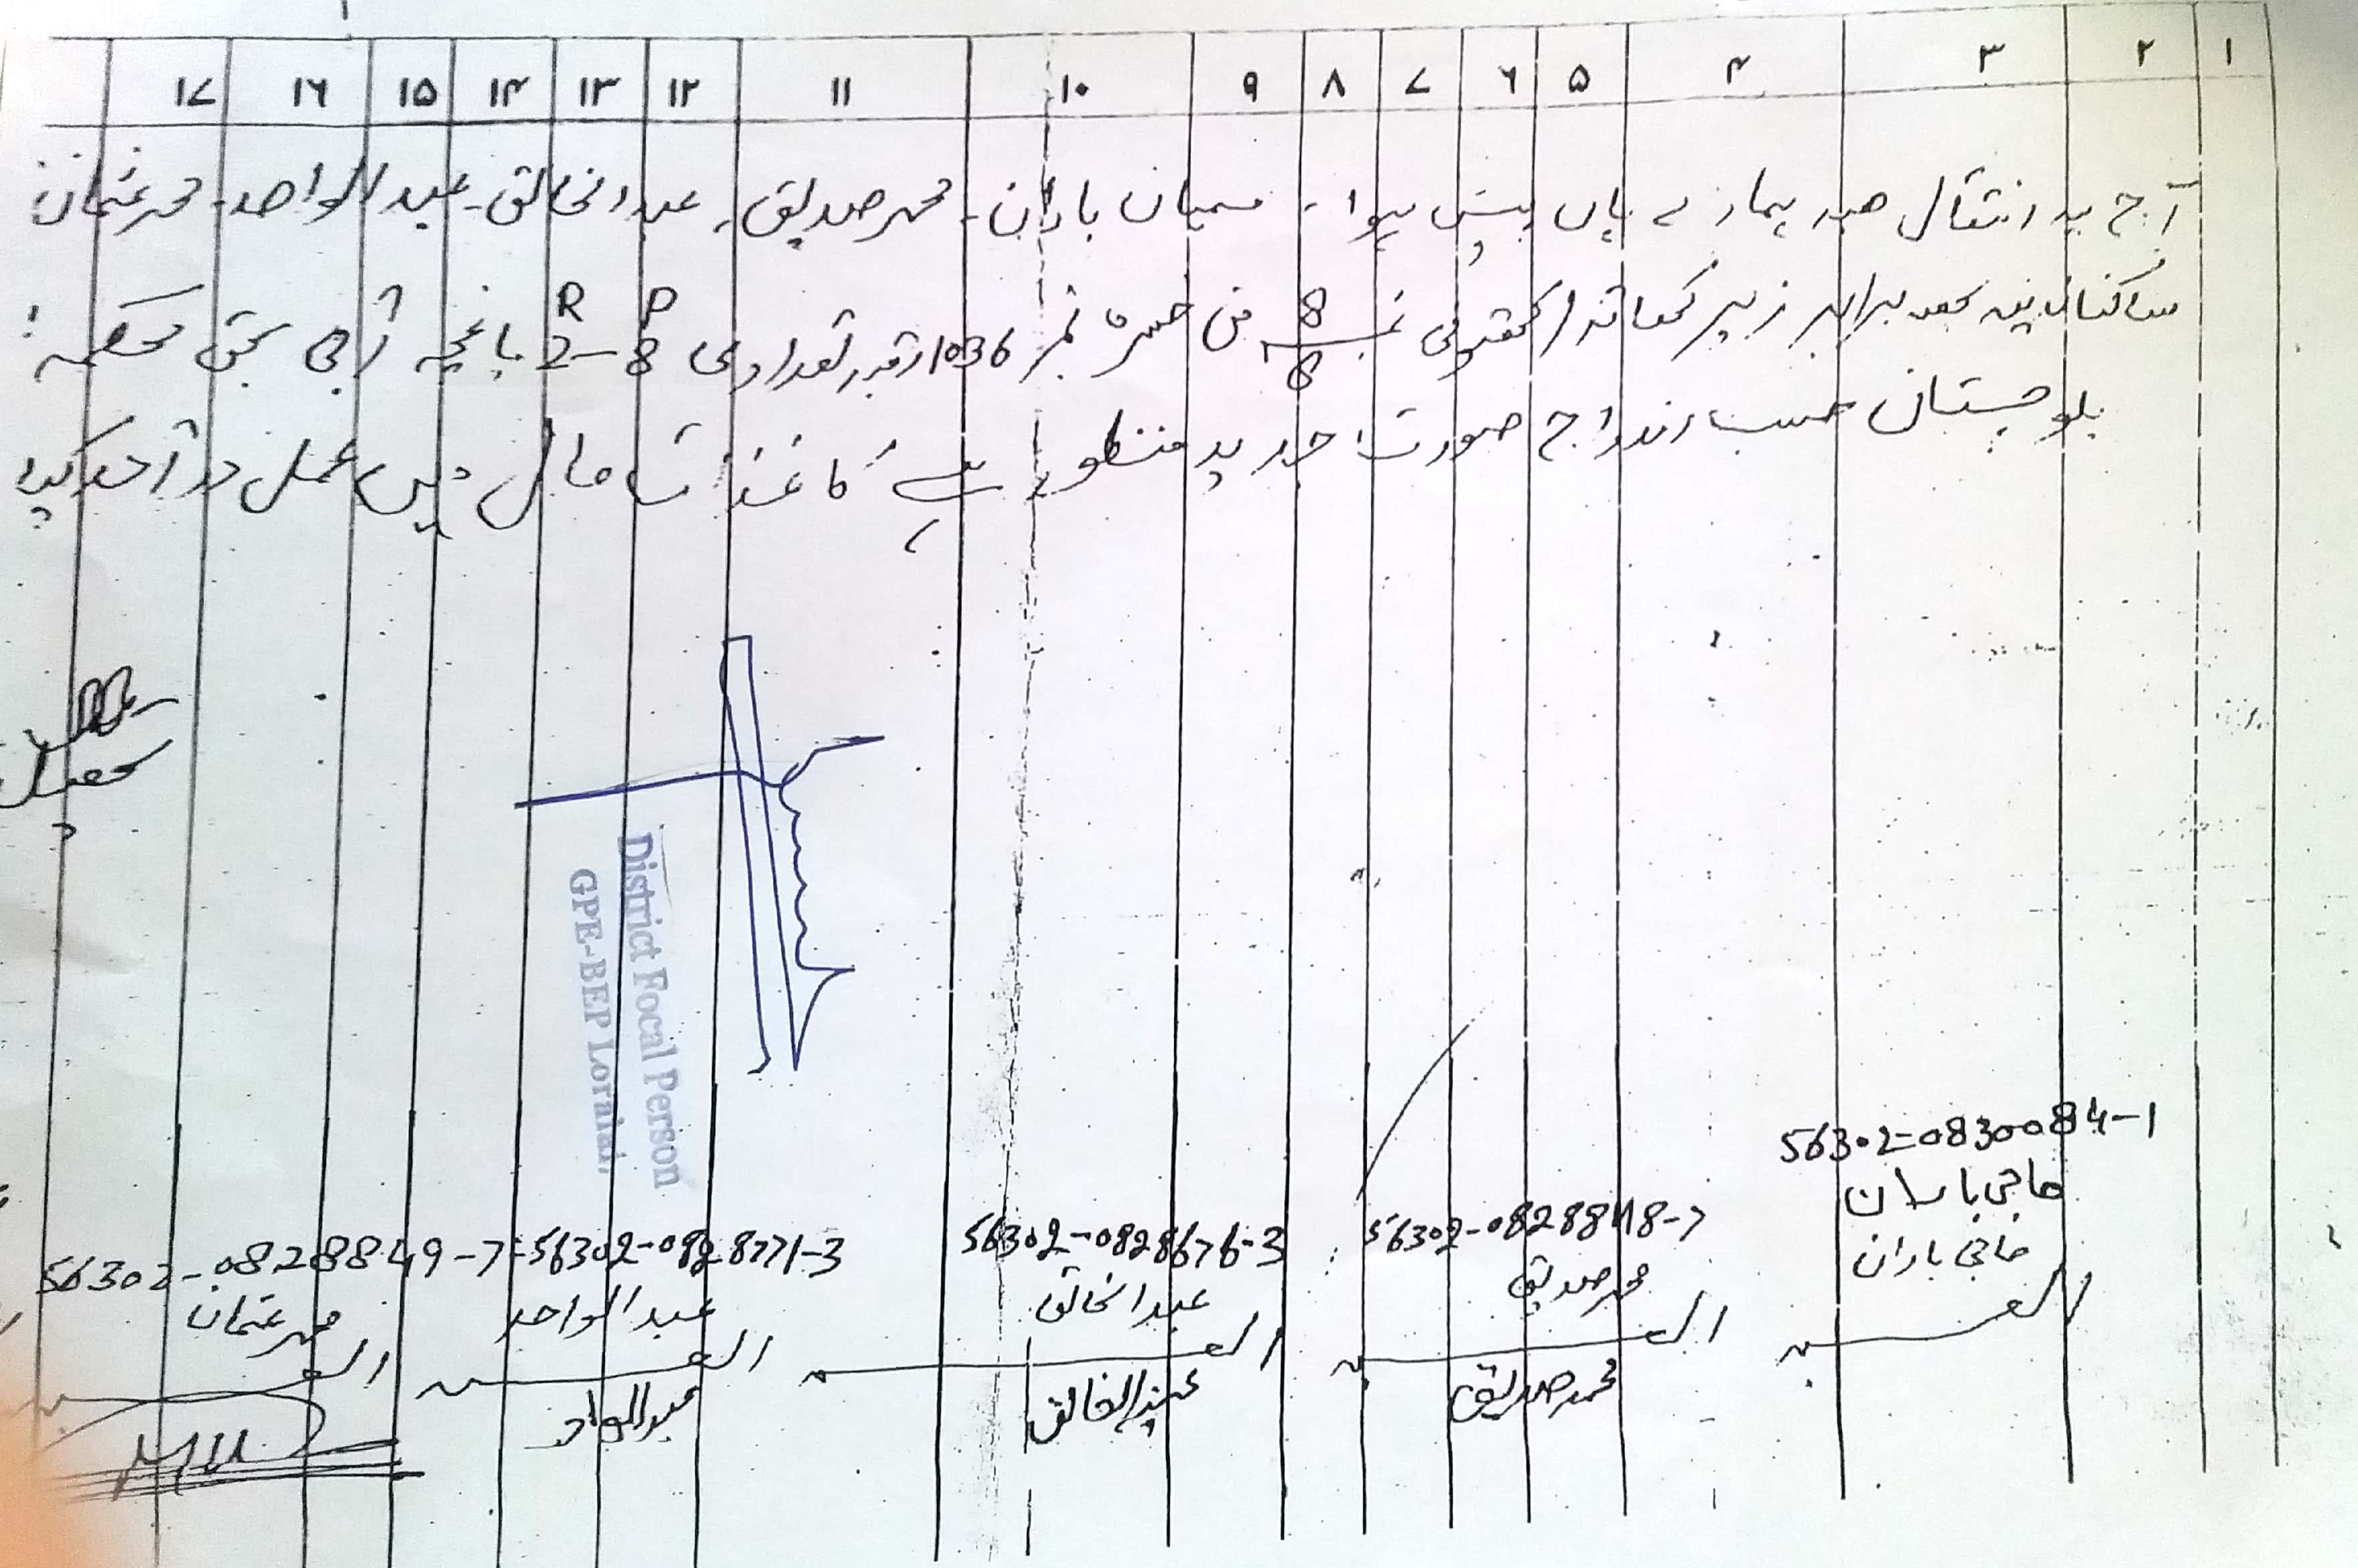 ۱ ۲ ۳ ۴ ۵ ۶ ۷ ۸ ۹ ۱۰ ۱۱ ۱۲ ۱۳ ۱۴ ۱۵ ۱۶ ۱۷
آج یہ انتقال ھبہ ہمارے ہاں پیش ہوا۔ مسمیان باران۔ محمد صدیق۔ عبدالخالق۔ عبدالواحد۔ محمد عثمان
ساکنان بحصہ برابر زیر کھاتہ / کھتونی نمبر 8/8 من خسرہ نمبر 1036 رقبہ تعدادی R P 2-8 باغچہ آبی بحق محکمہ
بلوچستان حسب اندراج صورت جدید منظور ہے کاغذات مال میں عمل درآمد کیا
تحصیل
District Focal Person
GPE-BEP Loralai.
56302-0830084-1
حاجی باران
حاجی باران
العبد
56302-0828848-7
محمد صدیق
العبد
محمد صدیق
56302-0828676-3
عبدالخالق
العبد
عبدالخالق
56302-0828771-3
عبدالواحد
العبد
عبدالواحد
56302-0828849-7
محمد عثمان
العبد